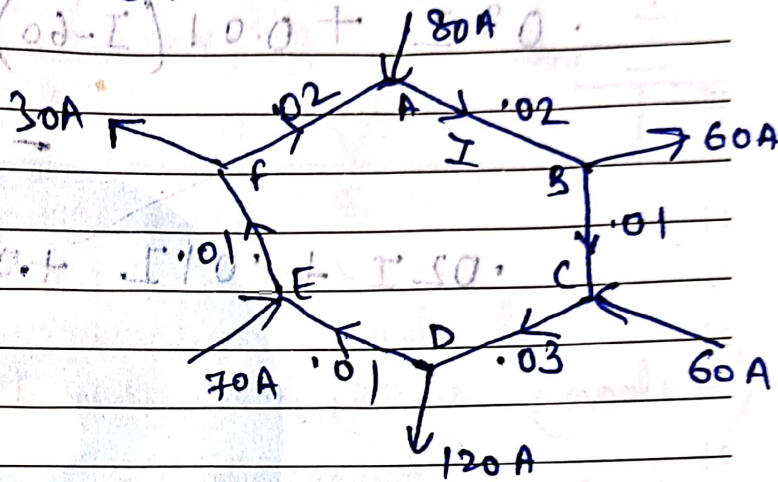 80A
30A
.02
A
.02
I
60A
F
B
.01
.01
E
C
D
.03
70A
.01
60A
120A